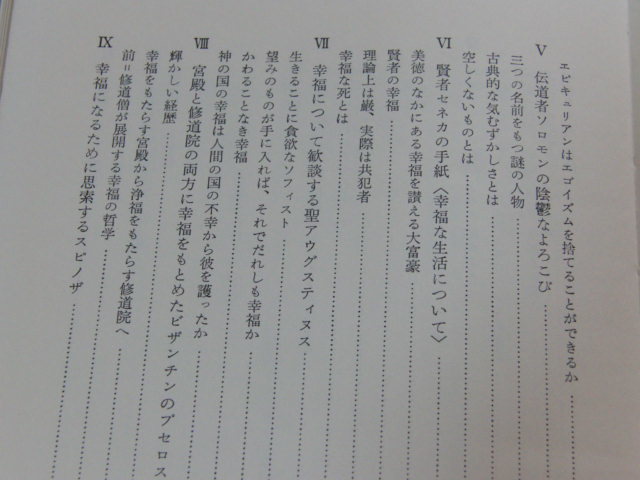 エピキュリアンはエゴイズムを捨てることができるか
Ⅴ 伝道者ソロモンの陰鬱なよろこび
三つの名前をもつ謎の人物
古典的な気むずかしさとは
空しくないものとは
Ⅵ 賢者セネカの手紙〈幸福な生活について〉
美徳のなかにある幸福を讃える大富豪
賢者の幸福
理論上は厳、実際は共犯者
幸福な死とは
Ⅶ 幸福について歓談する聖アウグスティヌス
生きることに貪欲なソフィスト
望みのものが手に入れば、それでだれしも幸福か
かわることなき幸福
神の国の幸福は人間の国の不幸から彼を護ったか
Ⅷ 宮殿と修道院の両方に幸福をもとめたビザンチンのプセロス
輝かしい経歴
幸福をもたらす宮殿から浄福をもたらす修道院へ
前=修道僧が展開する幸福の哲学
Ⅸ 幸福になるために思索するスピノザ